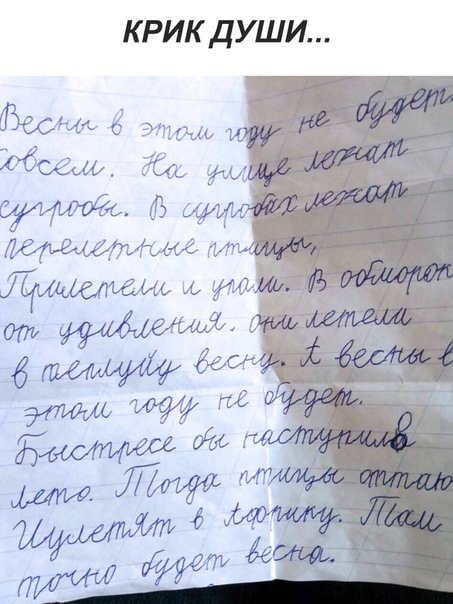 КРИК ДУШИ...
Весны в этом году не будет.
Совсем. На улице лежат
сугробы. В сугробах лежат
перелетные птицы,
Прилетели и упали. В обморок
от удивления. они летели
в теплуйу весну. А весны в
этом году не будет.
Быстресе бы наступило
лето. Тогда птицы оттаю
Иулетят в Африку. Там
точно будет весна.